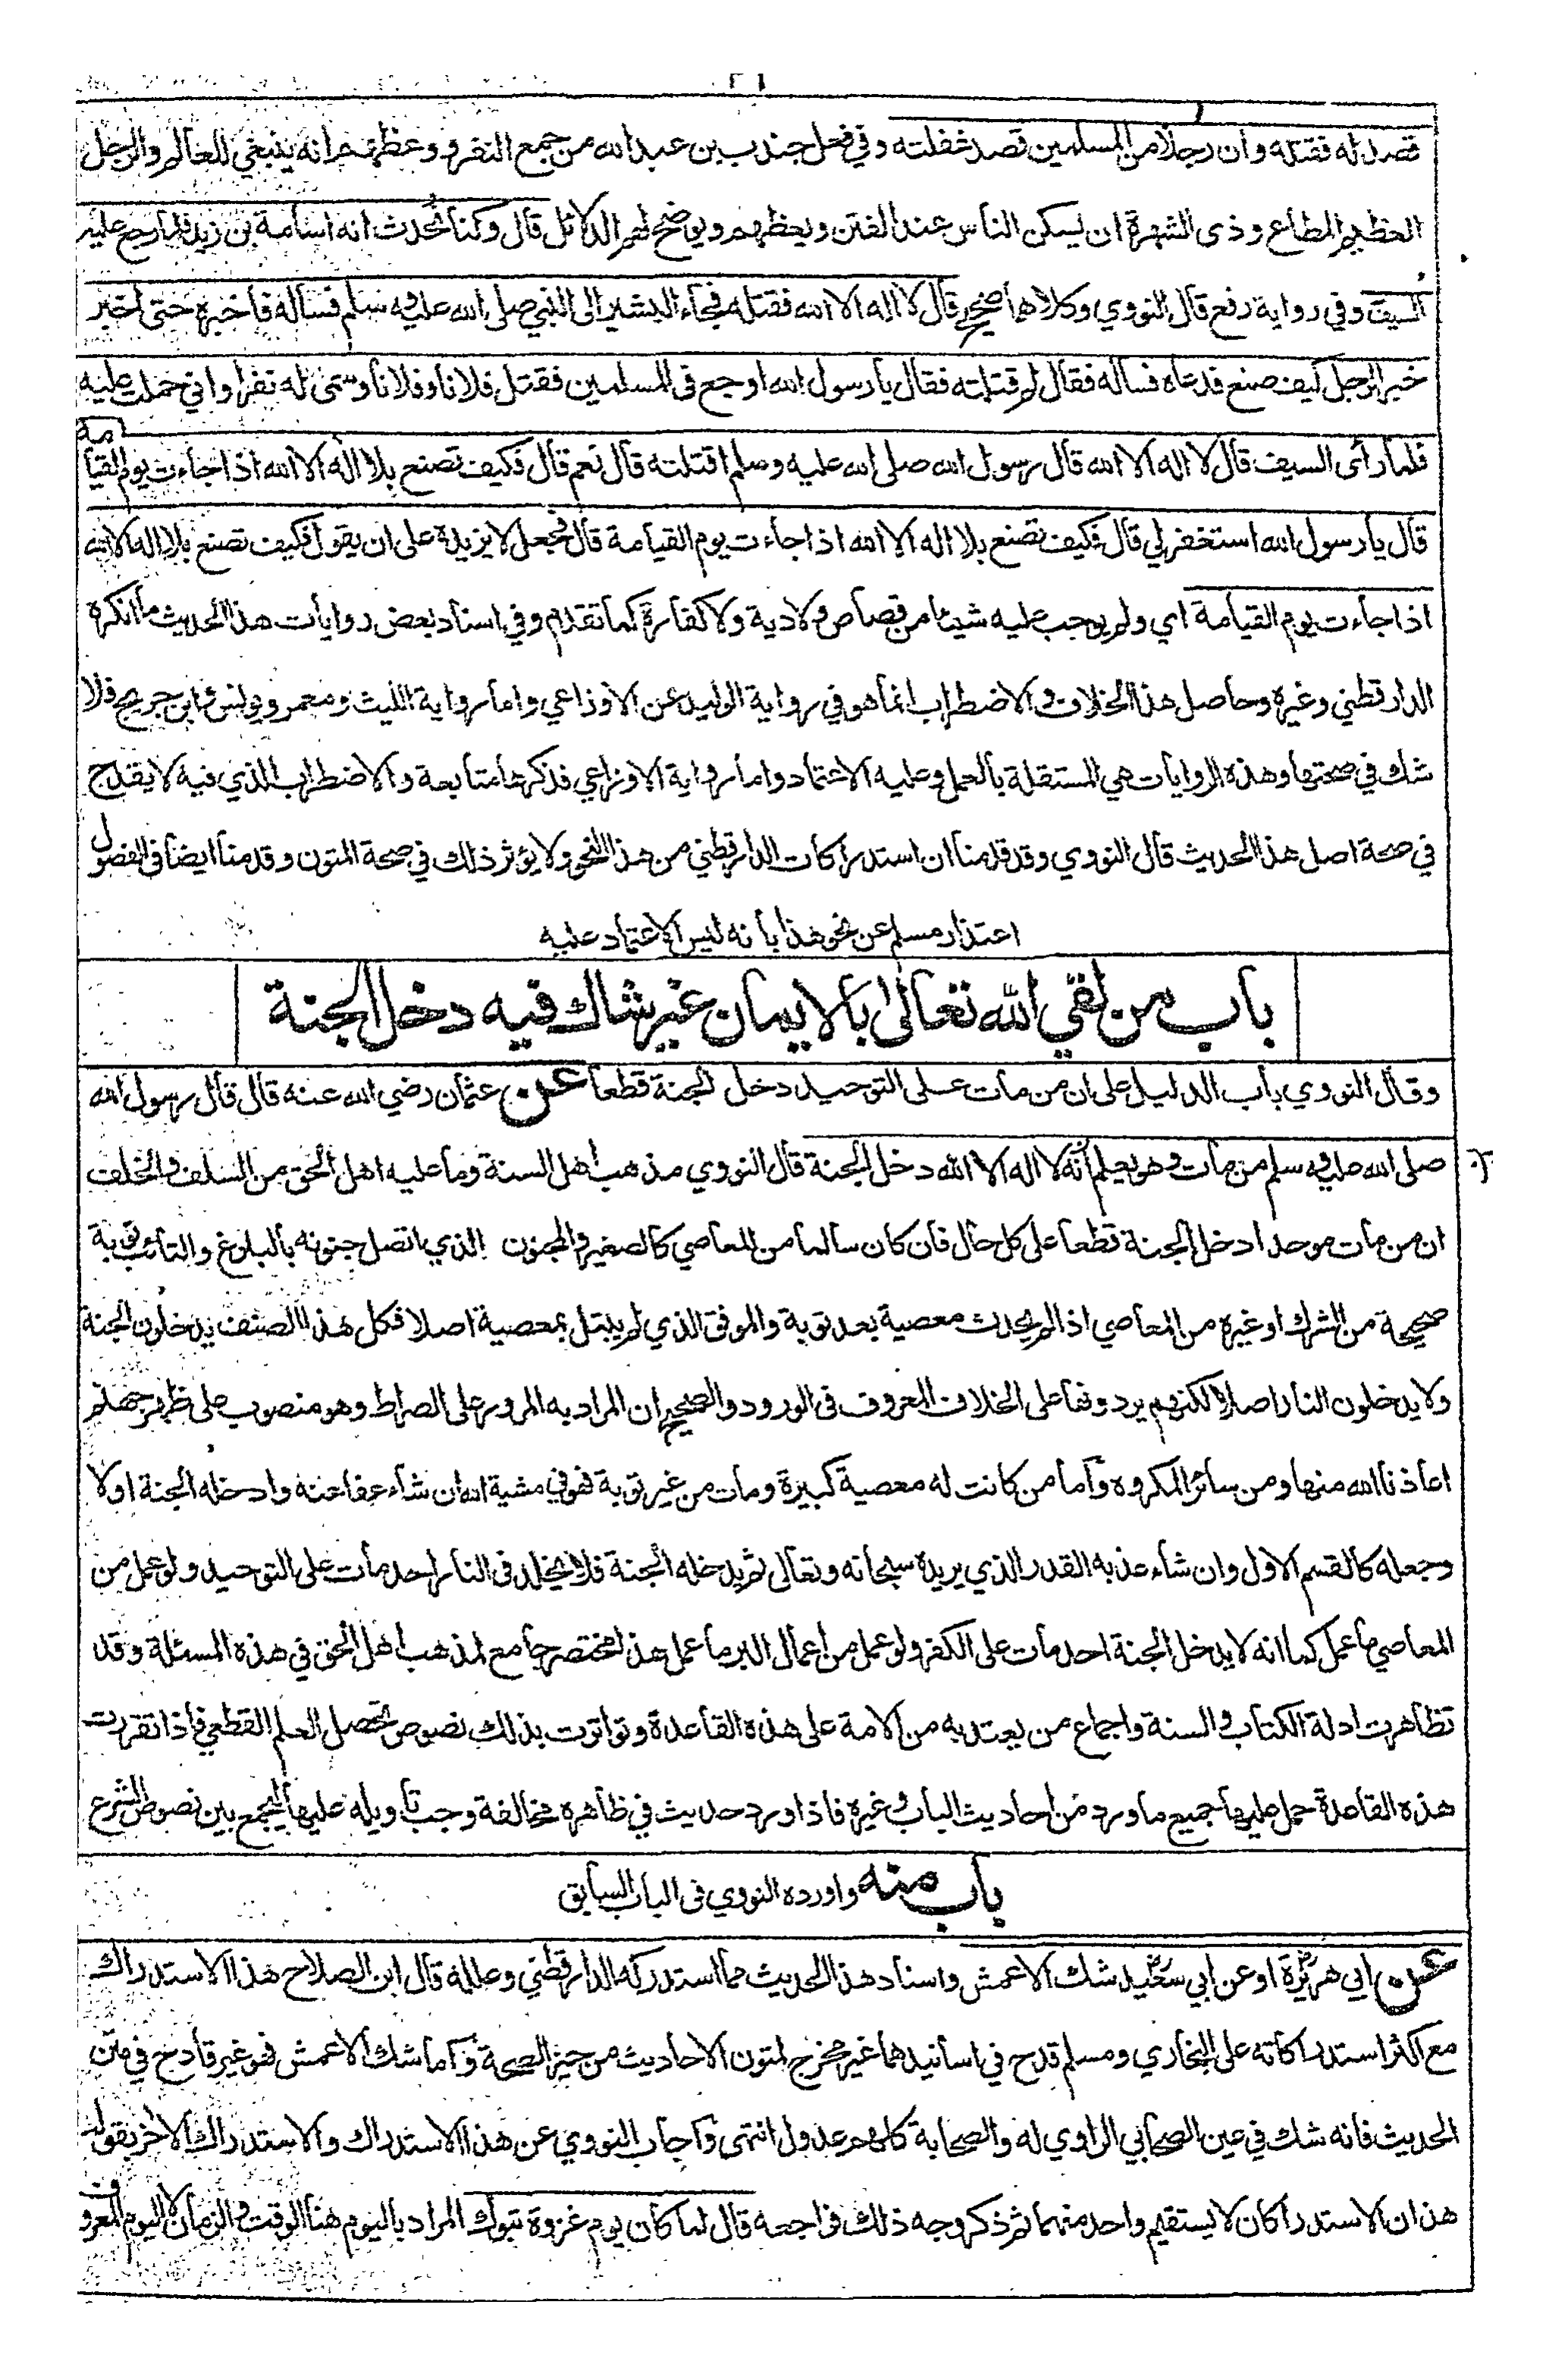 ٢١
قصد له فقتله وان رجلا من المسلمين قصد غفلته وفي فعل جندب بن عبد الله من جمع النفر ووعظهم انه ينبغي للعالم والرجل
العظيم المطاع وذى الشهرة ان يسكن الناس عند الفتن ويعظهم ويوضح لهم الدلائل قال وكنا نحدث انه اسامة بن زيد فلما رجع عليه
السيف وفي رواية رفع قال النووي وكلاهما صحيح قال لا اله الا الله فقتله فجاء البشير الى النبي صلى الله عليه وسلم فسأله فأخبره حتى اخبر
خبر الرجل كيف صنع فدعاه فسأله فقال لم قتلته فقال يا رسول الله اوجع فى المسلمين فقتل فلانا وفلانا وسمى له نفرا واني حملت عليه
فلما رأى السيف قال لا اله الا الله قال رسول الله صلى الله عليه وسلم اقتلته قال نعم قال فكيف تصنع بلا اله الا الله اذا جاءت يوم القيامة
قال يا رسول الله استغفر لي قال فكيف تصنع بلا اله الا الله اذا جاءت يوم القيامة قال فجعل لا يزيده على ان يقول فكيف تصنع بلا اله الا الله
اذا جاءت يوم القيامة اي ولم يوجب عليه شيئا من قصاص ولا دية ولا كفارة كما تقدم وفي اسناد بعض روايات هذا الحديث ما انكره
الدارقطني وغيره وحاصل هذا الخلاف والاضطراب انما هو في رواية الوليد عن الاوزاعي واما رواية الليث ومعمر ويونس وابن جريج فلا
شك في صحتها وهذه الروايات هي المستقلة بالعمل وعليه الاعتماد واما رواية الاوزاعي فذكرها متابعة والاضطراب الذي فيه لا يقدح
في صحة اصل هذا الحديث قال النووي وقد قدمنا ان استدراكات الدارقطني من هذا النحو ولا يؤثر ذلك في صحة المتون وقدمنا ايضا فى الفصول
اعتذار مسلم عن نحو هذا بانه ليس الاعتماد عليه
باب من لقي الله تعالى بالايمان غير شاك فيه دخل الجنة
وقال النووي باب الدليل على ان من مات على التوحيد دخل الجنة قطعا عن عثمان رضي الله عنه قال قال رسول الله
صلى الله عليه وسلم من مات وهو يعلم أنه لا اله الا الله دخل الجنة قال النووي مذهب اهل السنة وما عليه اهل الحق من السلف والخلف
ان من مات موحدا دخل الجنة قطعا على كل حال فان كان سالما من المعاصي كالصغير والمجنون الذي اتصل جنونه بالبلوغ والتائب توبة
صحيحة من الشرك او غيره من المعاصي اذا لم يحدث معصية بعد توبة والموفق الذي لم يبتل بمعصية اصلا فكل هذا الصنف يدخلون الجنة
ولا يدخلون النار اصلا لكنهم يردونها على الخلاف المعروف فى الورود والصحيح ان المراد به المرور على الصراط وهو منصوب على ظهر جهنم
اعاذنا الله منها ومن سائر المكروه وأما من كانت له معصية كبيرة ومات من غير توبة فهو في مشية الله ان شاء عفا عنه وادخله الجنة اولا
وجعله كالقسم الاول وان شاء عذبه القدر الذي يريده سبحانه وتعالى ثم يدخله الجنة فلا يخلد فى النار احد مات على التوحيد ولو عمل من
المعاصي ما عمل كما انه لا يدخل الجنة احد مات على الكفر ولو عمل من اعمال البر ما عمل هذا مختصر جامع لمذهب اهل الحق في هذه المسئلة وقد
تظاهرت ادلة الكتاب والسنة واجماع من يعتد به من الامة على هذه القاعدة وتواترت بذلك نصوص تحصل العلم القطعي فاذا تقررت
هذه القاعدة حمل عليها جميع ما ورد من احاديث الباب وغيره فاذا ورد حديث في ظاهره مخالفة وجب تأويله عليها ليجمع بين نصوص الشرع
باب منه واورده النووي فى الباب السابق
عن ابي هريرة او عن ابي سعيد شك الاعمش واسناد هذا الحديث مما استدركه الدارقطني وعلله قال ابن الصلاح هذا الاستدراك
مع اكثر استدراكاته على البخاري ومسلم قدح في اسانيدهما غير مخرج لمتون الاحاديث من حيز الصحة وأما شك الاعمش فهو غير قادح في متن
الحديث فانه شك في عين الصحابي الراوي له والصحابة كلهم عدول انتهى وأجاب النووي عن هذا الاستدراك والاستدراك الاخر بقوله
هذان الاستدراكان لا يستقيم واحد منهما ثم ذكر وجه ذلك فراجعه قال لما كان يوم غزوة تبوك المراد باليوم هنا الوقت والزمان لا اليوم المعروف